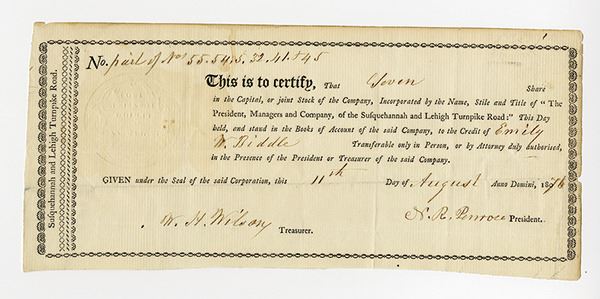 No. part of Nos 55.54.5.32.41.&45
This is to certify, That Seven Share
in the Capital, or joint Stock of the Company, Incorporated by the Name, Stile and Title of "The
President, Managers and Company, of the Susquehannah and Lehigh Turnpike Road:" This Day
held, and stand in the Books of Account of the said Company, to the Credit of Emily
W. Biddle Transferable only in Person, or by Attorney duly authorised,
in the Presence of the President or Treasurer of the said Company.
GIVEN under the Seal of the said Corporation, this 11th Day of August Anno Domini, 1876
W. H. Wilson Treasurer.
N. R. Penrose President.
Susquehannah and Lehigh Turnpike Road.